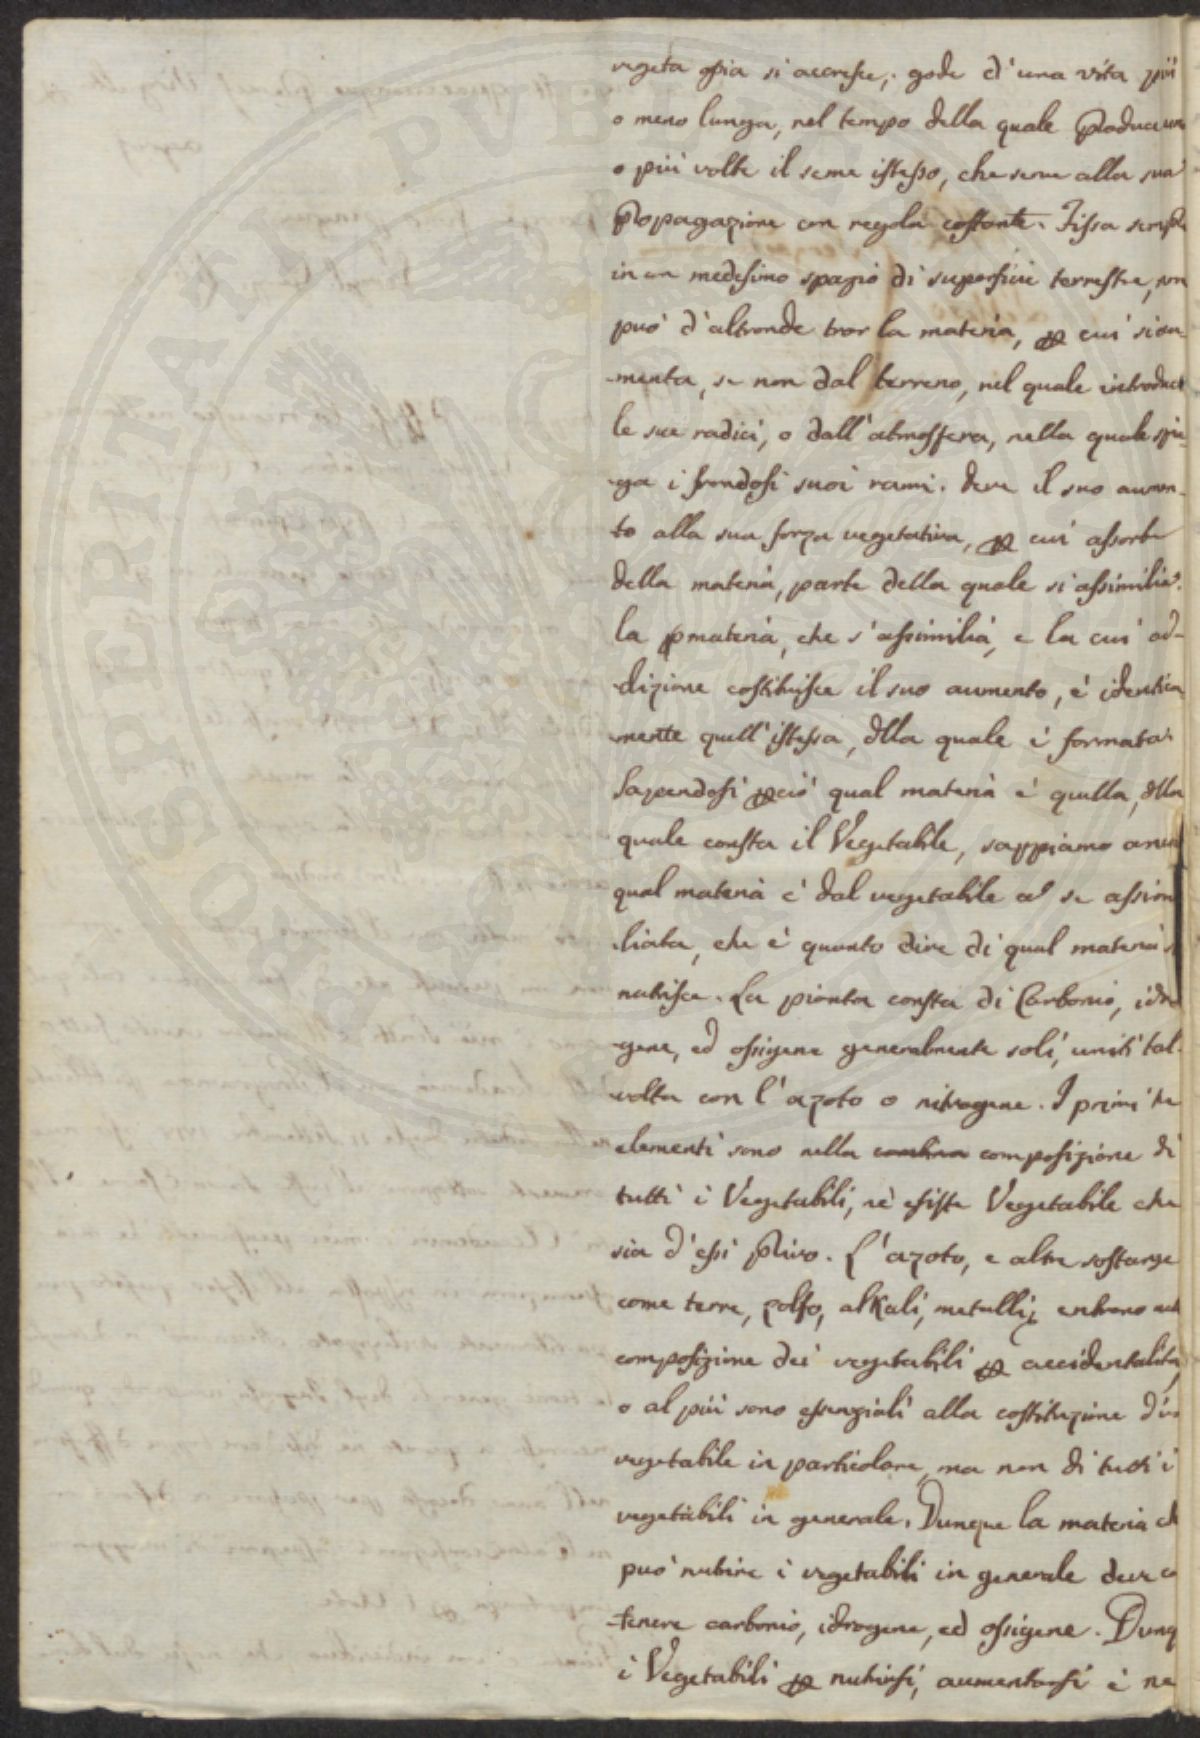 vegeta ossia si accresce, gode d'una vita più
o meno lunga, nel tempo della quale produce una
o più volte il seme istesso, che serve alla sua
propagazione con regola costante. Fissa sempre
in un medesimo spazio di superficie terrestre, non
può d'altronde trar la materia, per cui si au-
-menta, se non dal terreno, nel quale introduce
le sue radici, o dall'atmosfera, nella quale spie-
-ga i frondosi suoi rami. Deve il suo aumen-
to alla sua forza vegetativa, per cui assorbe
della materia, parte della quale si assimilia.
la materia, che s'assimilia, e la cui ad-
-dizione costituisce il suo aumento, è identica
-mente quell'istessa, dlla quale è formata.
Sapendosi perciò qual materia è quella, dlla
quale consta il Vegetabile, sappiamo anche
qual materia è dal vegetabile a se assimi
-liata, che è quanto dire di qual materia si
nutrisce. La pianta consta di Carbonio, idro
-gene, ed ossigene generalmente soli, uniti tal-
-volta con l'azoto o nitrogene. I primi tre
elementi sono nella combina composizione di
tutti i Vegetabili, nè esiste Vegetabile che
sia d'essi privo. L'azoto, e altre sostanze
come terre, zolfo, alkali, metalli, entrano nella
composizione dei vegetabili per accidentalità,
o al più sono essenziali alla costituzione d'un
vegetabile in particolare, ma non di tutti i
vegetabili in generale. Dunque la materia che
può nutrire i vegetabili in generale deve co
-tenere carbonio, idrogene, ed ossigene. Dunq
i Vegetabili per nutrirsi, aumentarsi è ne
PROSPERITATI PVBLICAE